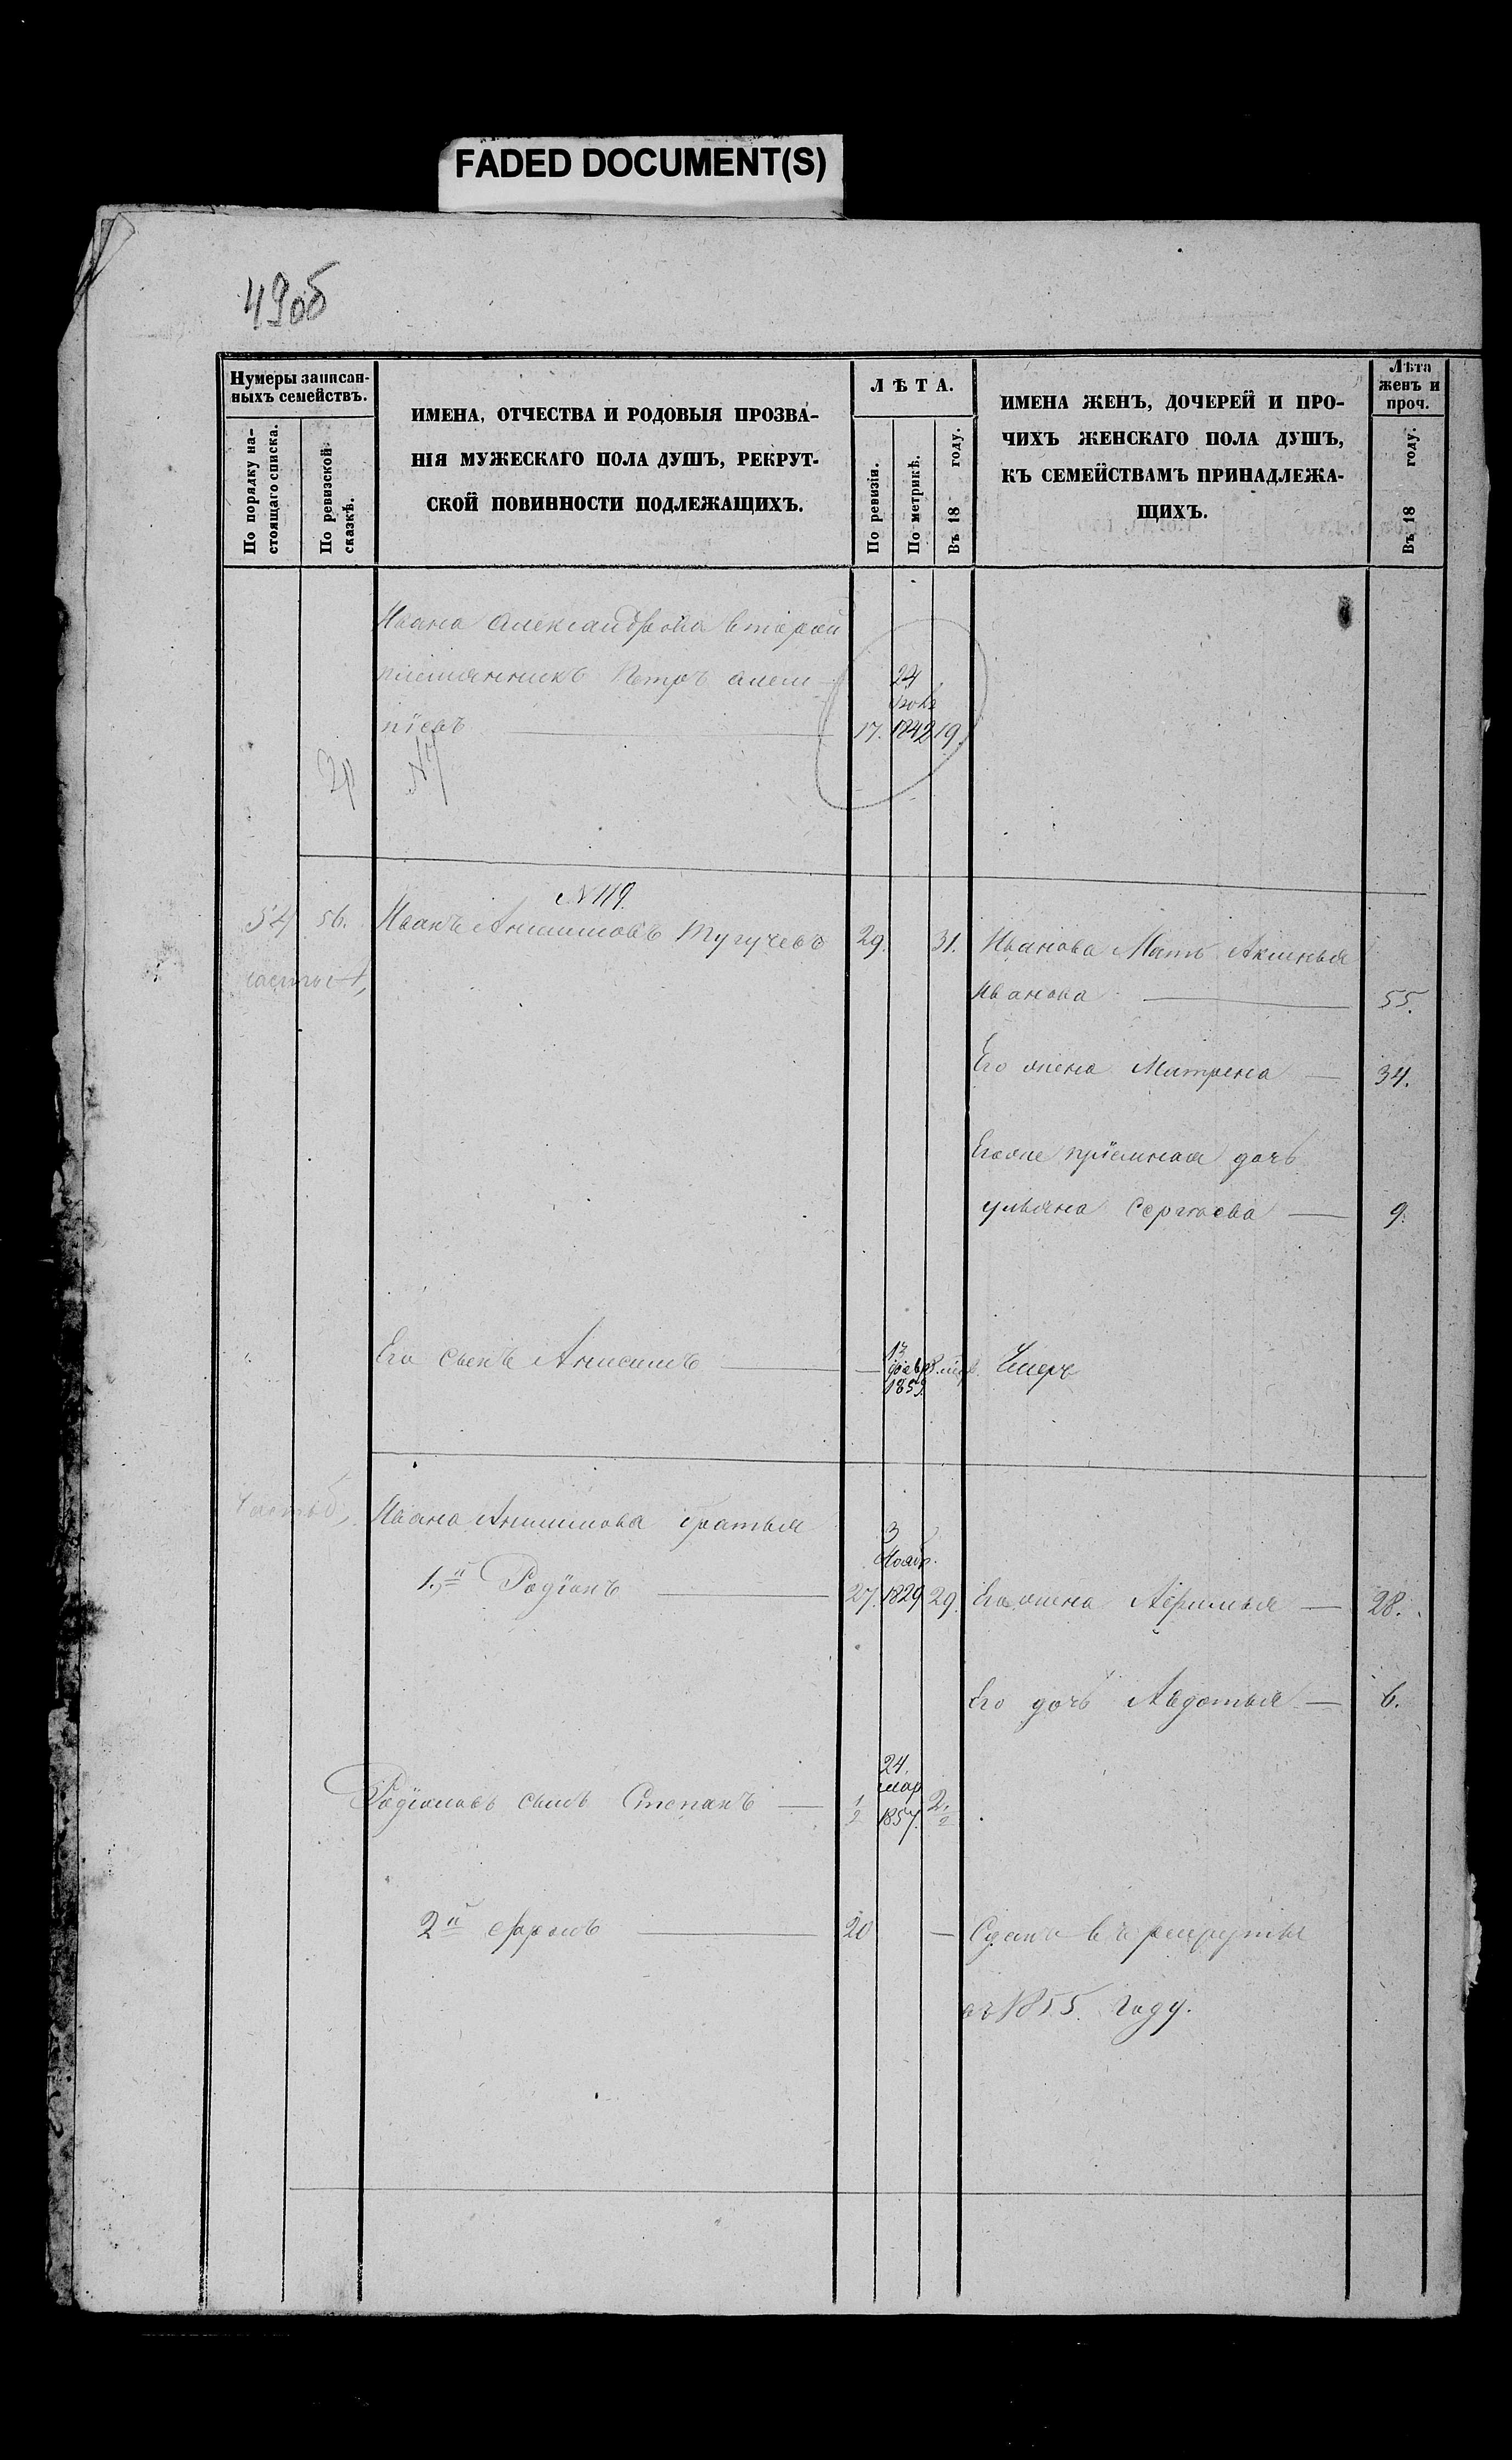 FADED DOCUMENT(S)
49об
Нумеры записан-
ныхъ семействъ.
По порядку на-
стоящаго списка.
По ревизской
сказкѣ.
ИМЕНА, ОТЧЕСТВА И РОДОВЫЯ ПРОЗВА-
НІЯ МУЖЕСКАГО ПОЛА ДУШЪ, РЕКРУТ-
СКОЙ ПОВИННОСТИ ПОДЛЕЖАЩИХЪ.
ЛѢТА.
По ревизіи.
По метрикѣ.
Въ 18 году.
ИМЕНА ЖЕНЪ, ДОЧЕРЕЙ И ПРО-
ЧИХЪ ЖЕНСКАГО ПОЛА ДУШЪ,
КЪ СЕМЕЙСТВАМЪ ПРИНАДЛЕЖА-
ЩИХЪ.
Лѣта
женъ и
проч.
Въ 18 году.
Ивана Александрова второй
племянникъ Петръ
24
17. 1842 19.
N 119.
54 56. Иванъ Анисимовъ Тугучевъ 29. 31. Иванова Мать Аксинья
Иванова 55.
Его жена Матрена 34.
Егоже пріемная дочь
ульяна Сергѣева 9.
Его сынъ Анисимъ 13
1859 Умеръ
Ивана Анисимова братья
3
Нояб.
1й Родіонъ 27. 1829 29. Его жена Афимья 28.
Его дочь Авдотья 6.
24.
мар.
Родіоновъ сынъ Степанъ 1/2 1857. 2 1/2
2й Фролъ 20 Сданъ въ рекруты
въ 1855 году.